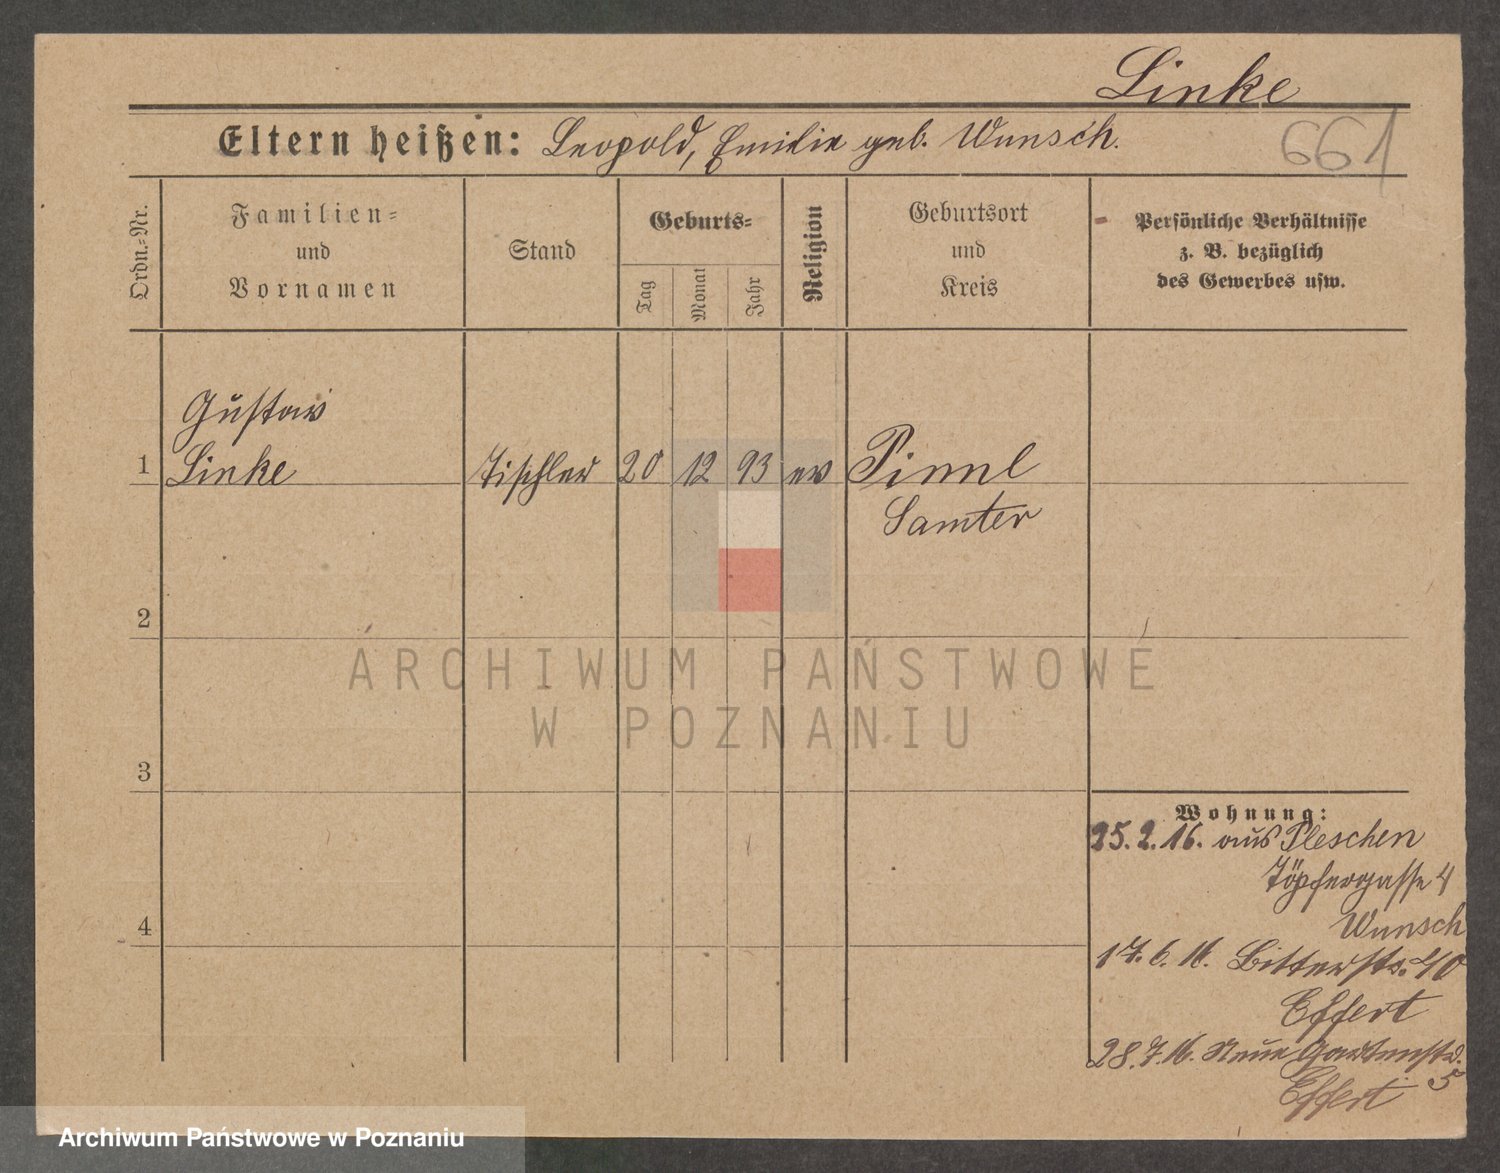 Linke
Eltern heißen: Leopold, Emilie geb. Wunsch.
661
Ordn.-Nr.
Familien-
und
Vornamen
Stand
Geburts-
Tag
Monat
Jahr
Religion
Geburtsort
und
Kreis
Persönliche Verhältnisse
z. B. bezüglich
des Gewerbes usw.
Gustav
1 Linke Tischler 20 12 93 ev Pinne
Samter
2
3
4
Wohnung:
25.2.16. aus Pleschen
Töpfergasse 4
Wunsch
17.6.16. Bitterstr. 40
Effert
28.7.16. Neue Gartenstr.
5
Effert
ARCHIWUM PAŃSTWOWE
W POZNANIU
Archiwum Państwowe w Poznaniu